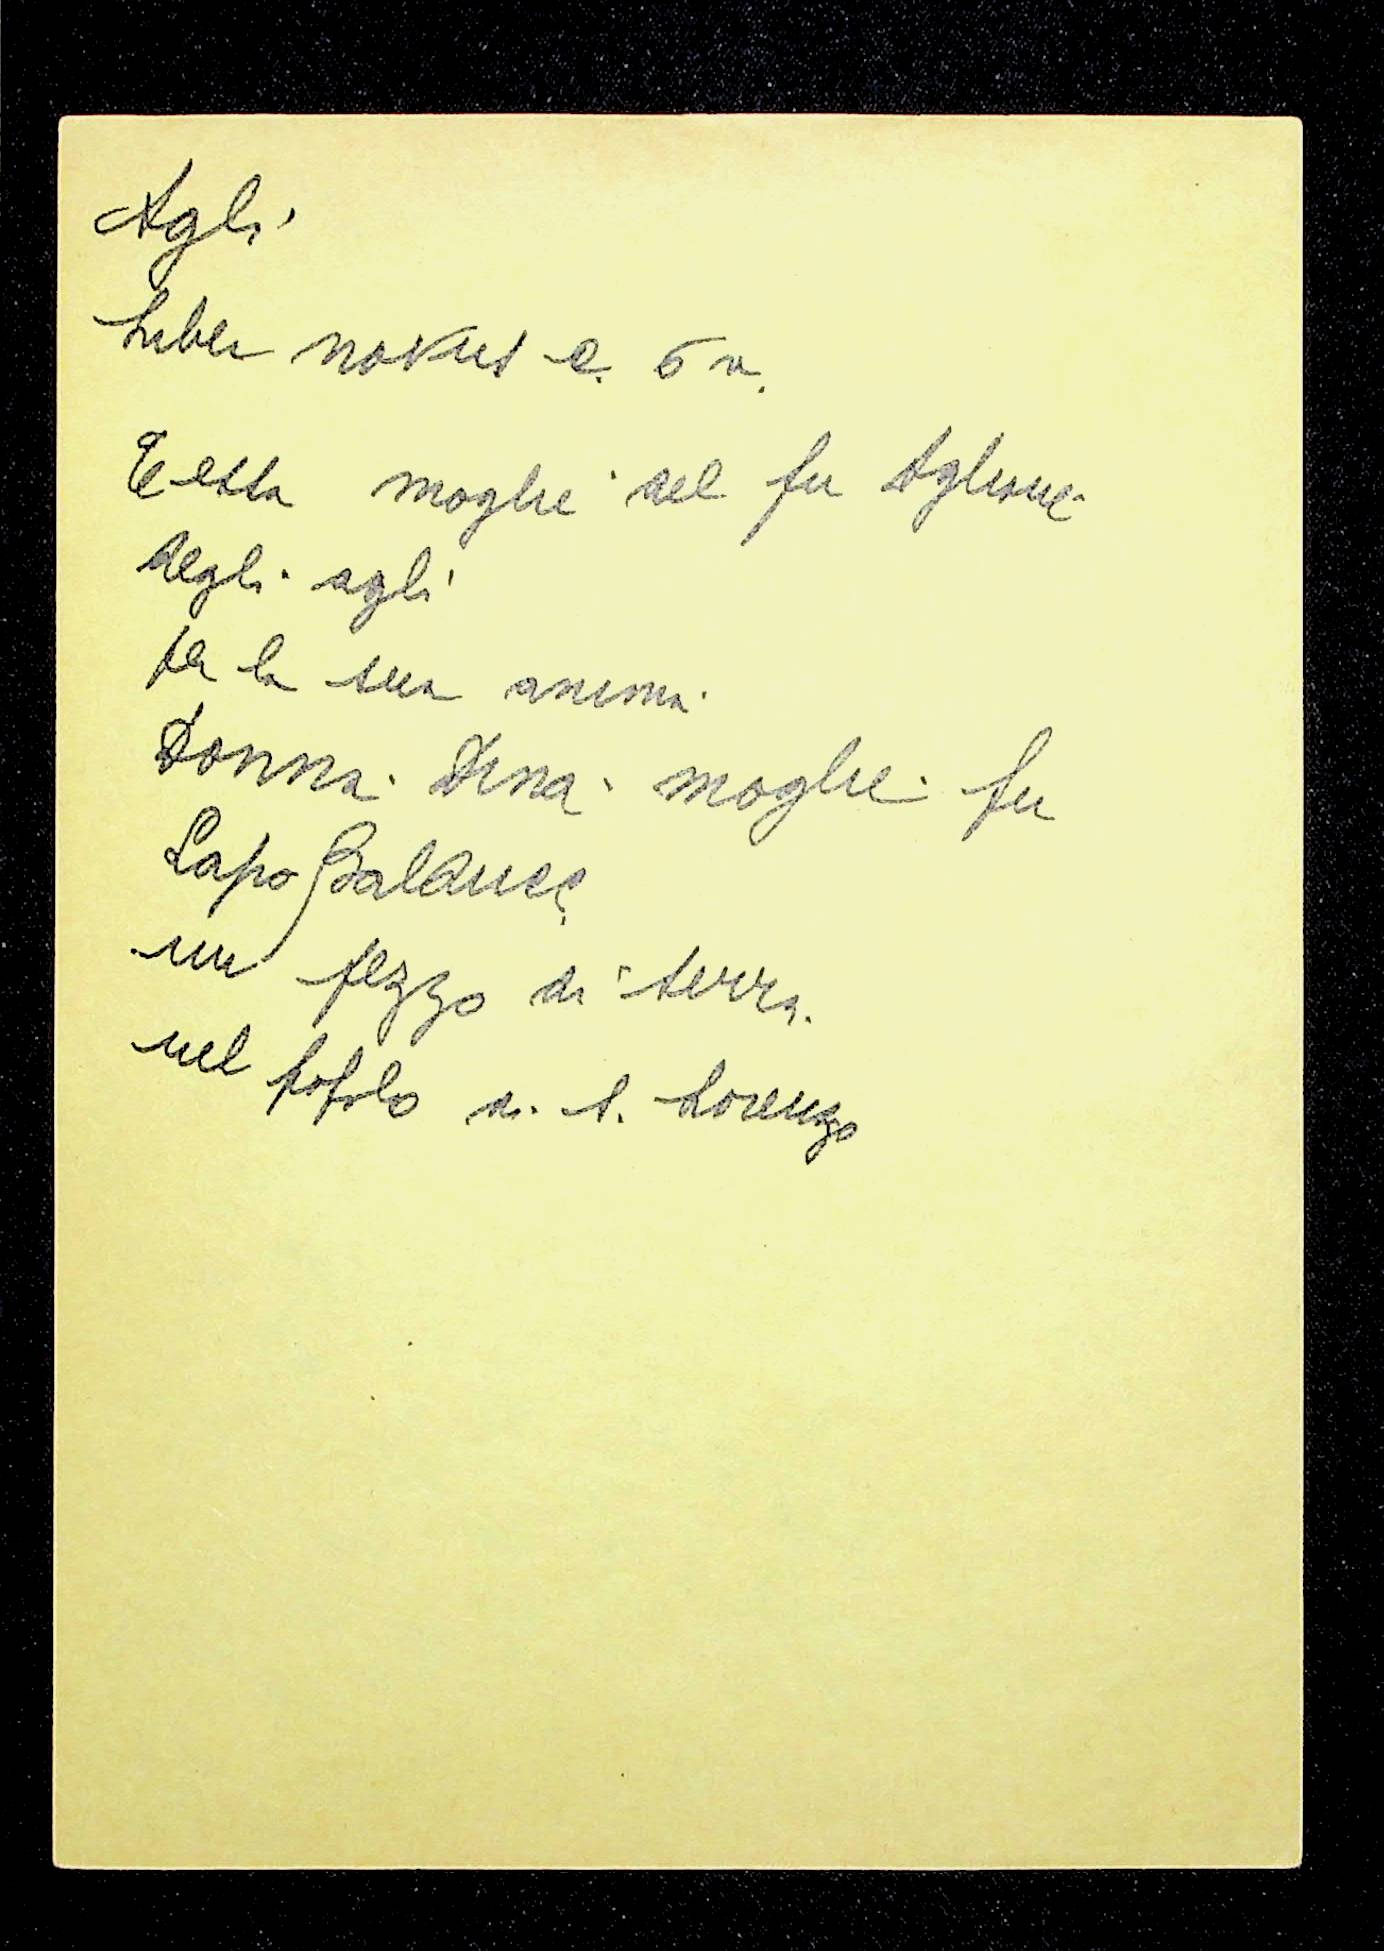 Agli
Liber novus c. 5 v.
Tessa moglie del fu Aglione
degli agli
per la sua anima
Donna Dina moglie fu
Lapo Balducci
un pezzo di terra
nel popolo di S. Lorenzo